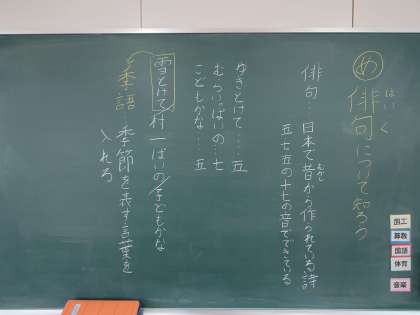 め 俳句について知ろう
はいく
俳句…日本で昔から作られている詩
むかし
五七五の十七の音でできている
ゆきとけて……五
むらいっぱいの…七
こどもかな…五
雪とけて村一ぱいの/子どもかな
季語…季節を表す言葉を
入れる
図工
算数
国語
体育
音楽